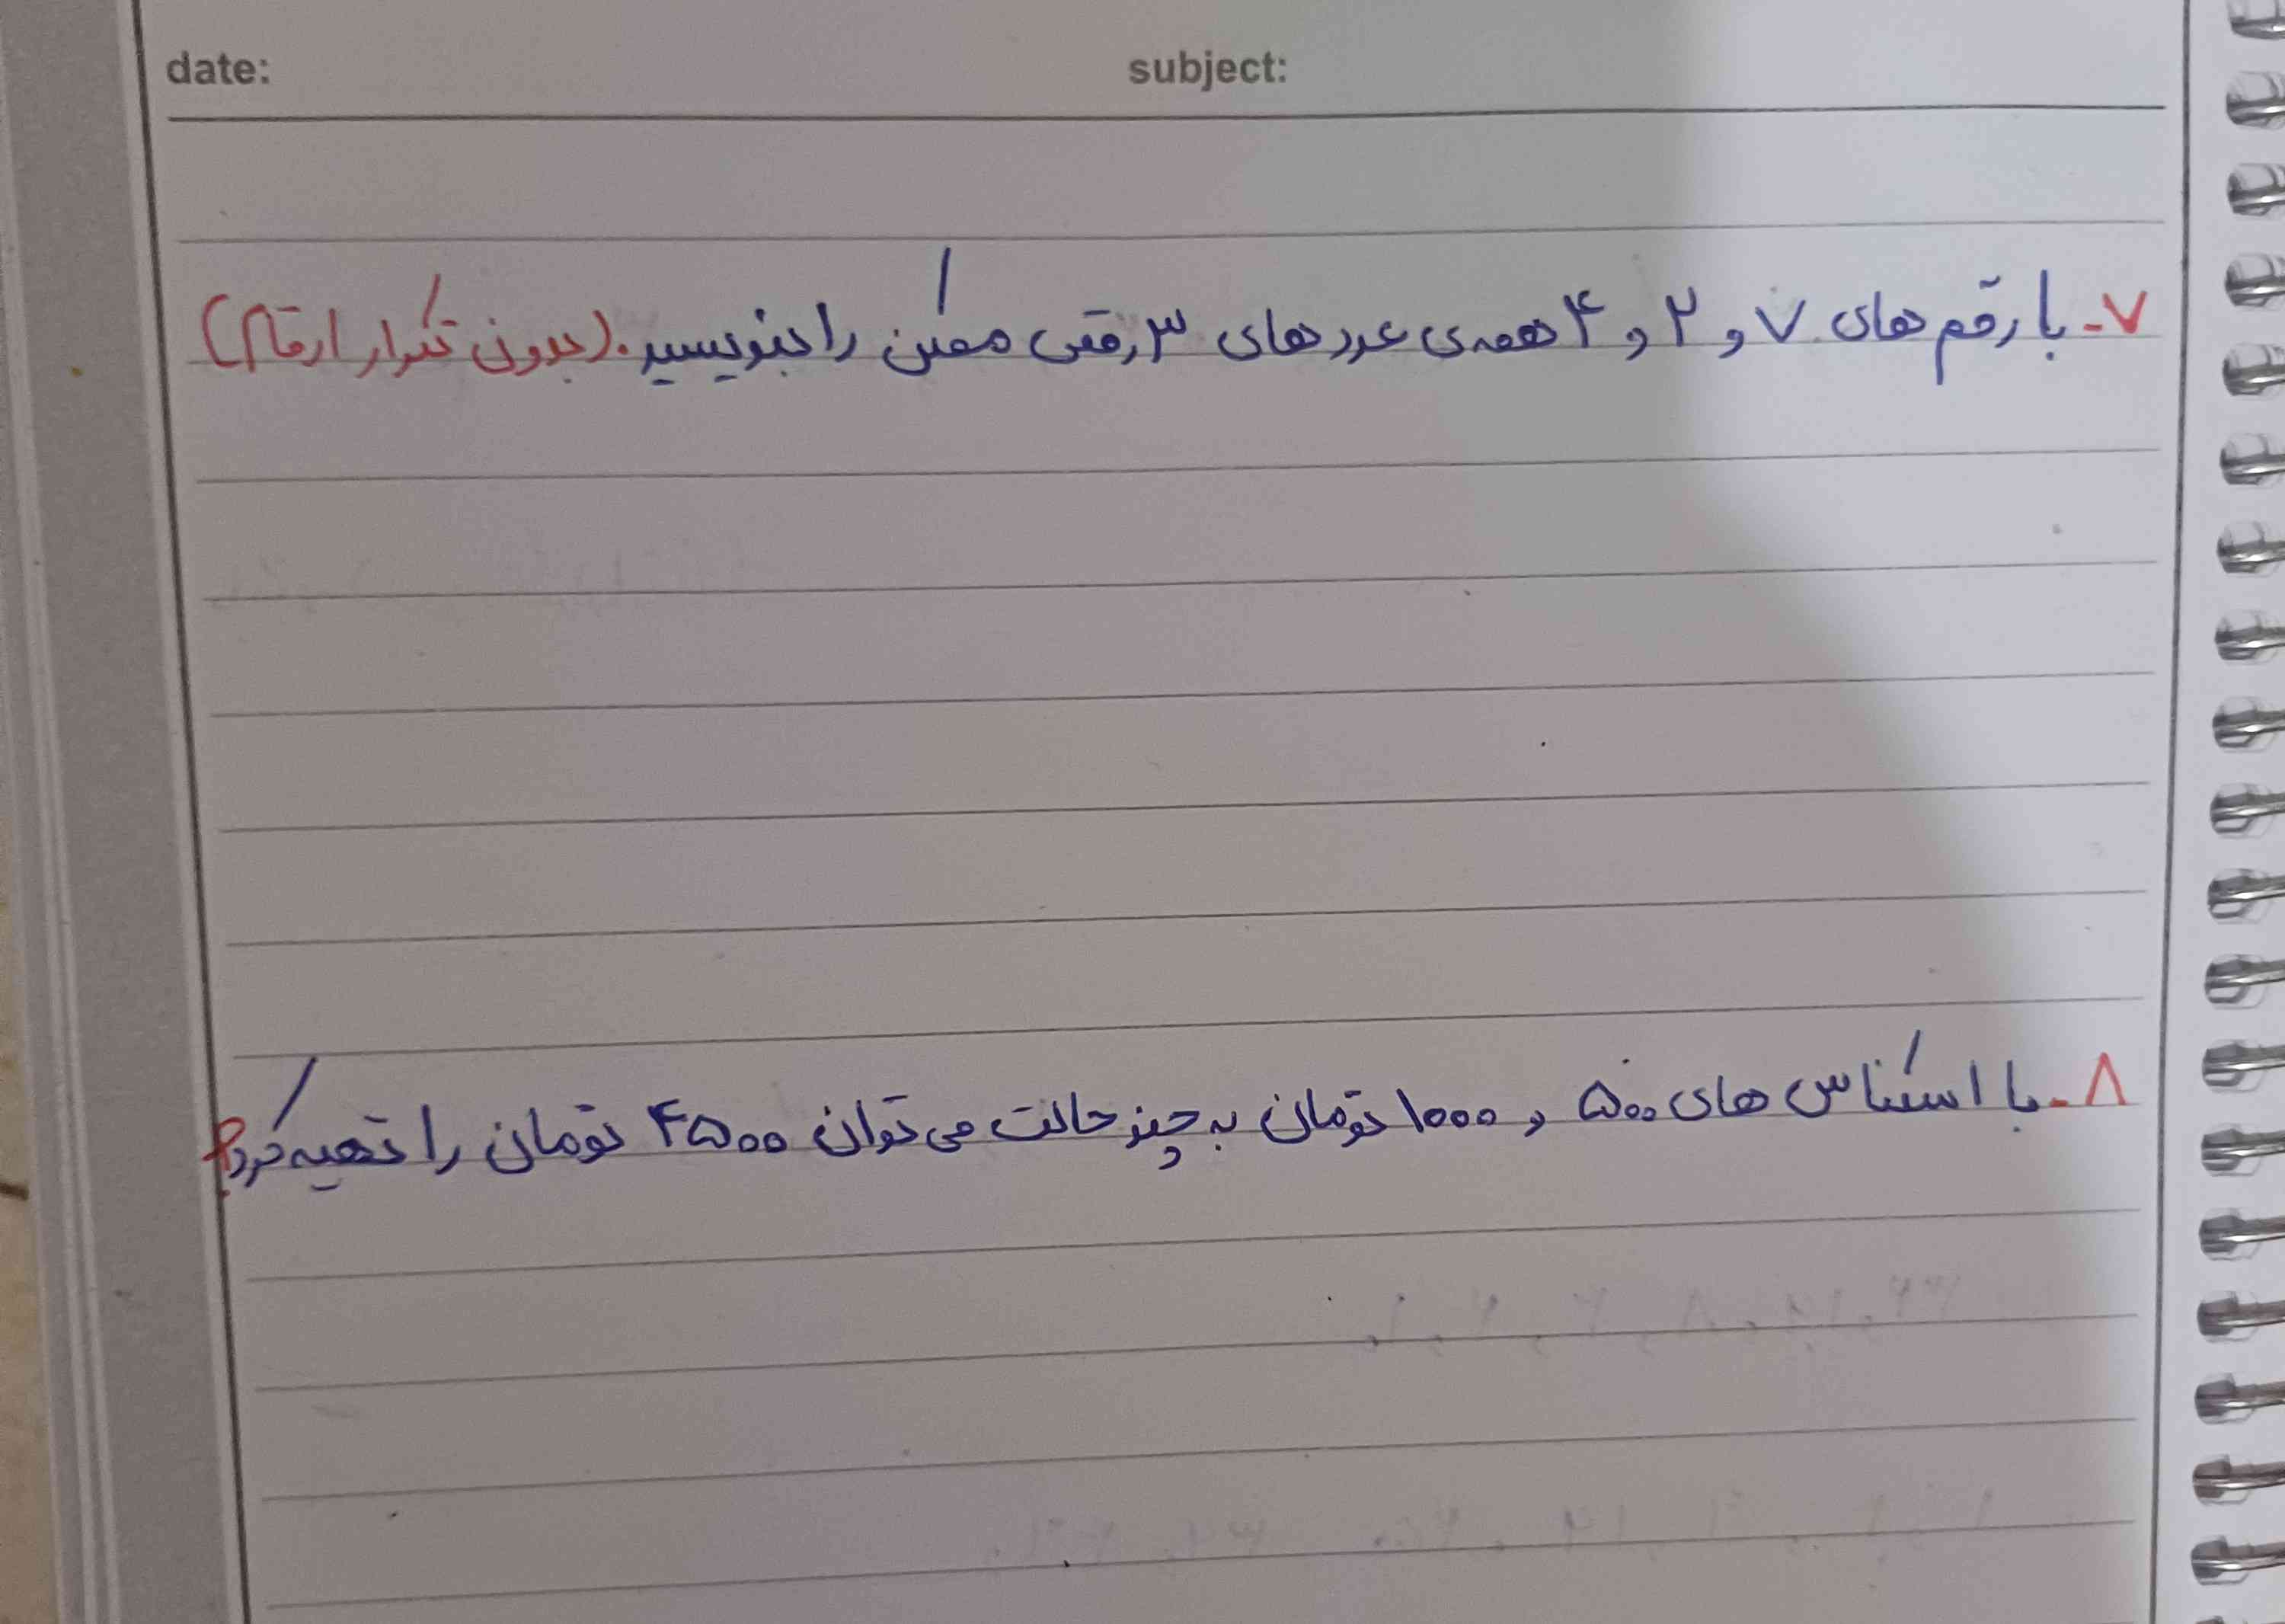 date: subject:
۷- با رقم های ۷ و ۲ و ۴ همه‌ی عددهای ۳ رقمی ممکن را بنویسید. (بدون تکرار ارقام)
۸- با اسکناس های ۵۰۰ و ۱۰۰۰ تومان به چند حالت می توان ۴۵۰۰ تومان را تهیه کرد؟